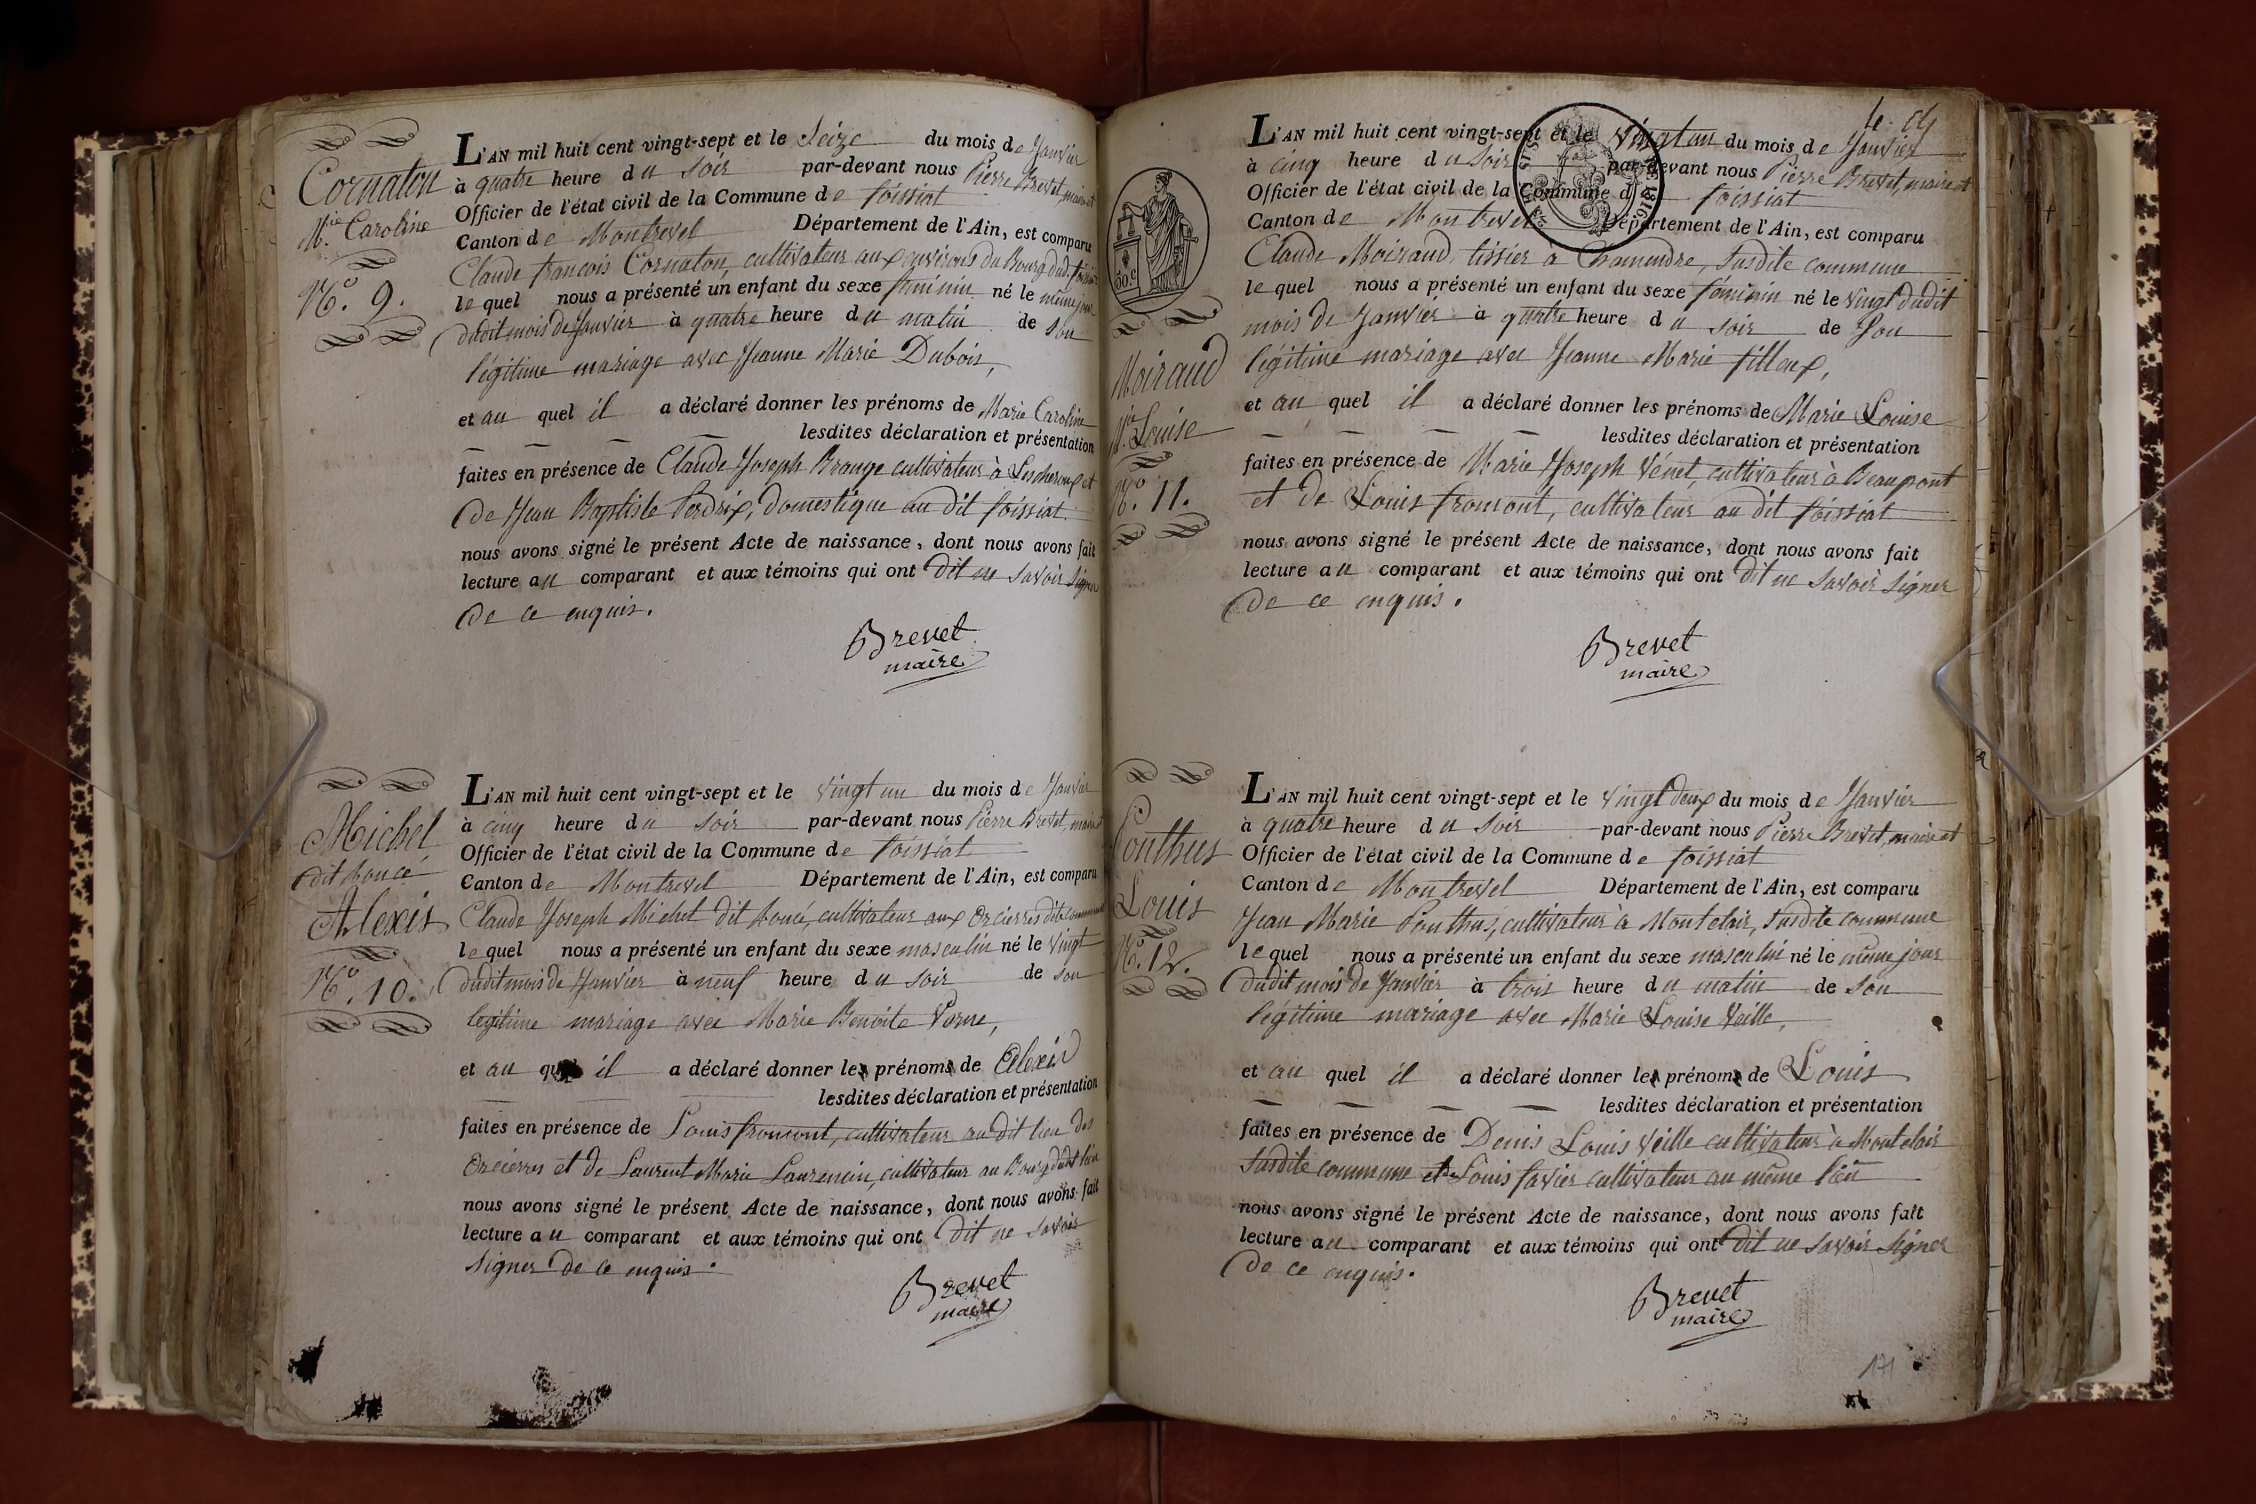 Cornaton
Mie. Caroline
No. 9.
L'AN mil huit cent vingt-sept et le Seize du mois de Janvier
à quatre heure du soir par-devant nous Pierre Brevet, maire et
Officier de l'état civil de la Commune de foissiat
Canton de Montrevel Département de l'Ain, est comparu
Claude françois Cornaton, cultivateur aux environs du Bourg dudit foissiat
lequel nous a présenté un enfant du sexe féminin né le même jour
dudit mois de Janvier à quatre heure du matin de son
légitime mariage avec Jeanne Marie Dubois,
et au quel il a déclaré donner les prénoms de Marie Caroline
lesdites déclaration et présentation
faites en présence de Claude Joseph Brange cultivateur à Lescheroux et
de Jean Baptiste Perdrix, domestique au dit foissiat
nous avons signé le présent Acte de naissance, dont nous avons fait
lecture au comparant et aux témoins qui ont dit ne savoir signer
de ce enquis.
Brevet
maire
Michel
dit Poncé
Alexis
No. 10.
L'AN mil huit cent vingt-sept et le vingt un du mois de Janvier
à cinq heure du soir par-devant nous Pierre Brevet, maire et
Officier de l'état civil de la Commune de foissiat
Canton de Montrevel Département de l'Ain, est comparu
Claude Joseph Michel dit Poncé, cultivateur aux Orcierres dite commune
lequel nous a présenté un enfant du sexe masculin né le vingt
dudit mois de Janvier à neuf heure du soir de son
légitime mariage avec Marie Benoite Verne,
et au quel il a déclaré donner les prénoms de Alexis
lesdites déclaration et présentation
faites en présence de Louis fromont, cultivateur au dit lieu des
Orcierres et de Laurent Marie Laurencin, cultivateur au Bourg dudit lieu
nous avons signé le présent Acte de naissance, dont nous avons fait
lecture au comparant et aux témoins qui ont dit ne savoir
signer de ce enquis.
Brevet
maire
60 c
Moiraud
Mie. Louise
No. 11.
L'AN mil huit cent vingt-sept et le vingt un du mois de Janvier
à cinq heure du soir par-devant nous Pierre Brevet, maire et
Officier de l'état civil de la Commune d foissiat
Canton de Montrevel Département de l'Ain, est comparu
Claude Moiraud, tissier à Chamendre, susdite commune
lequel nous a présenté un enfant du sexe féminin né le vingt dudit
mois de Janvier à quatre heure du soir de son
légitime mariage avec Jeanne Marie filloux,
et au quel il a déclaré donner les prénoms de Marie Louise
lesdites déclaration et présentation
faites en présence de Marie Joseph Vénet, cultivateur à Beaupont
et de Louis fromont, cultivateur au dit foissiat
nous avons signé le présent Acte de naissance, dont nous avons fait
lecture au comparant et aux témoins qui ont dit ne savoir signer
de ce enquis.
Brevet
maire
Ponthus
Louis
No. 12.
L'AN mil huit cent vingt-sept et le vingt deux du mois de Janvier
à quatre heure du soir par-devant nous Pierre Brevet, maire et
Officier de l'état civil de la Commune de foissiat
Canton de Montrevel Département de l'Ain, est comparu
Jean Marie Ponthus, cultivateur à Montclair, susdite commune
lequel nous a présenté un enfant du sexe masculin né le même jour
dudit mois de Janvier à trois heure du matin de son
légitime mariage avec Marie Louise Veille,
et au quel il a déclaré donner les prénoms de Louis
lesdites déclaration et présentation
faites en présence de Denis Louis Veille cultivateur à Montclair
susdite commune et de Louis favier cultivateur au même lieu
nous avons signé le présent Acte de naissance, dont nous avons fait
lecture au comparant et aux témoins qui ont dit ne savoir signer
de ce enquis.
Brevet
maire
171